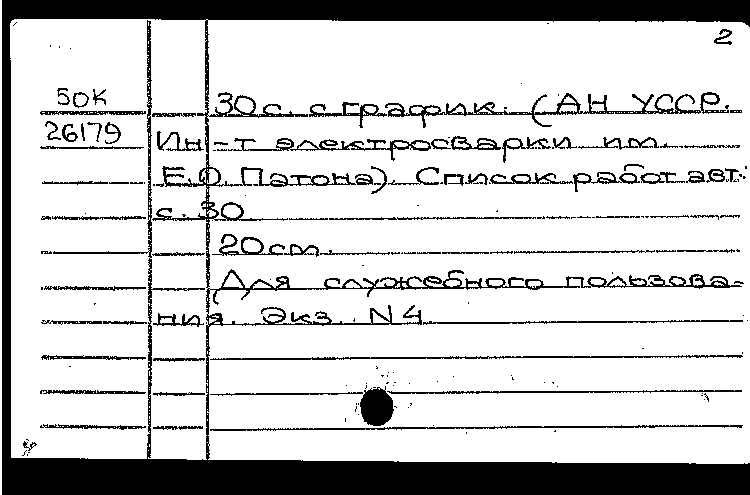 2
50К 30с. с график. (АН УССР.
26179 Ин-т электросварки им.
Е.О. Патона). Список работ авт.:
с. 30
20см.
Для служебного пользова-
ния. Экз. N4